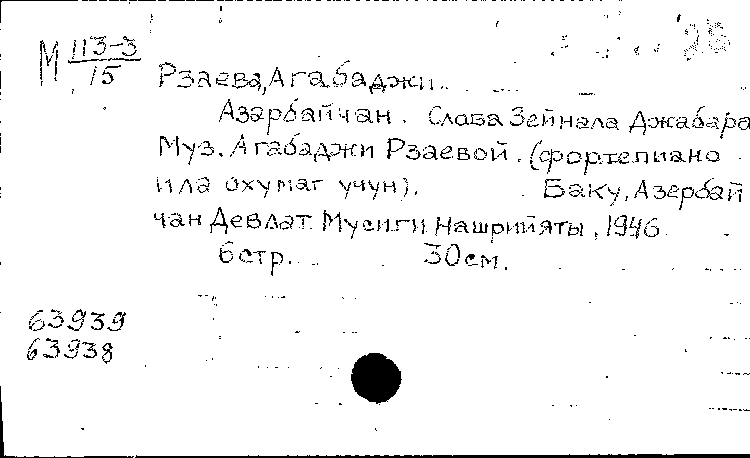 М 113-3
15
Рзаева, Агабаджи.
Азәрбайчан. Слова Зейнала Джабара
Муз. Агабаджи Рзаевой. (фортепиано
илә охумаг учун). Баку, Азербай
чан Девлат Мусиги Нәшрийяты, 1946.
6стр. 30см.
63939
63938